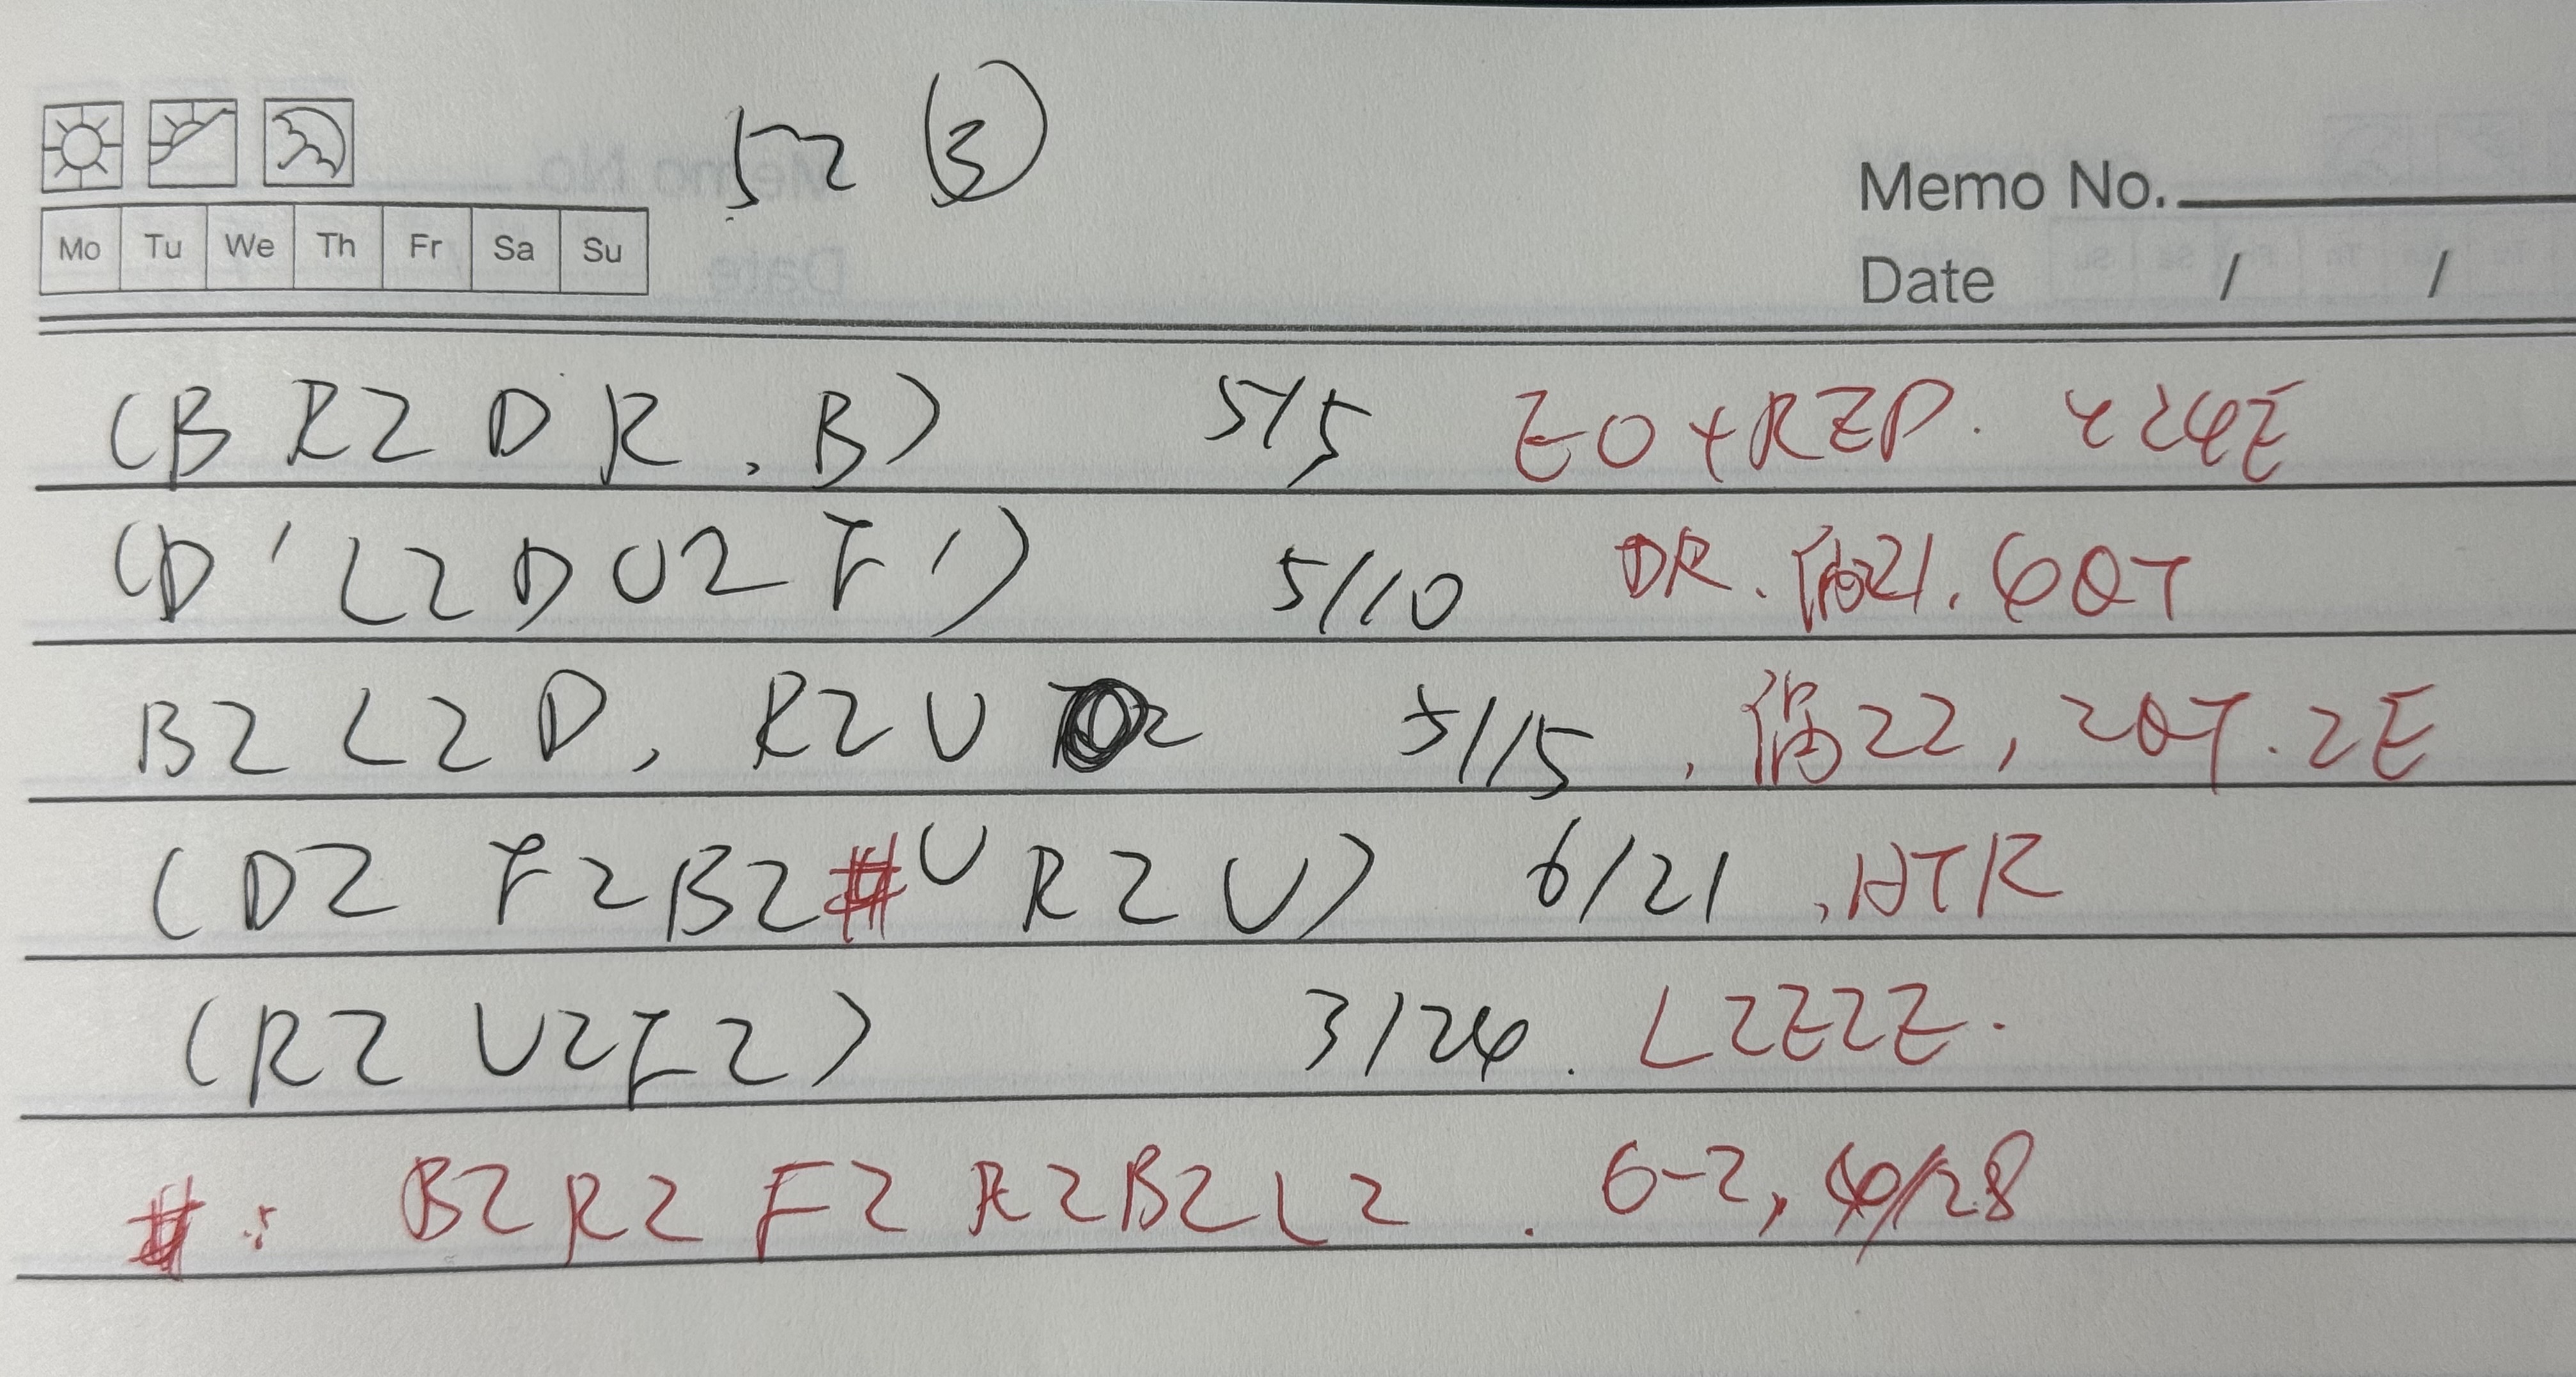 52 ③
Memo No.
Mo Tu We Th Fr Sa Su
Date / /
(B R2 D R, B) 5/5 EO+RZP. 4E
(D' L2 D U2 F') 5/10 DR. 偏21, 6QT
B2 L2 D, R2 U 2 5/15, 偏22, 2QT. 2E
(D2 F2 B2 # U R2 U) 6/21, HTR
(R2 U2 F2) 3/24. L2E2E.
#: B2 R2 F2 R2 B2 L2. 6-2, 4/28